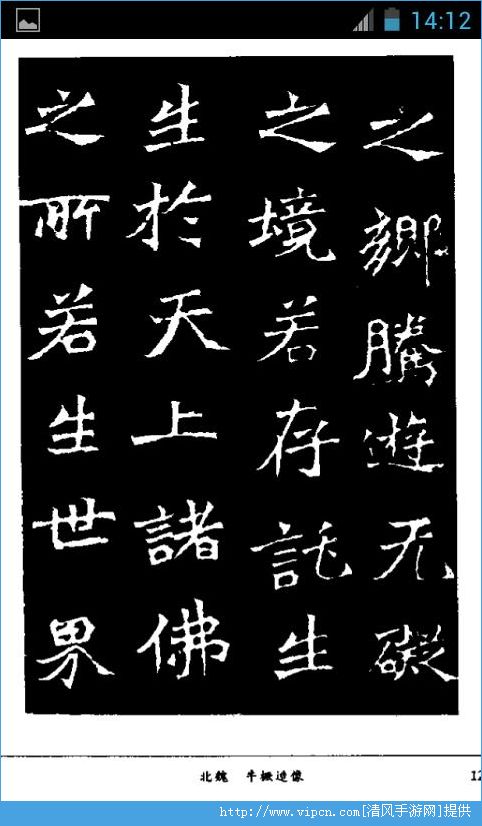 14:12
之鄉騰遊无礙
之境若存託生
生於天上諸佛
之所若生世界
北魏 牛橛造像
12
http://www.vipcn.com[清风手游网]提供